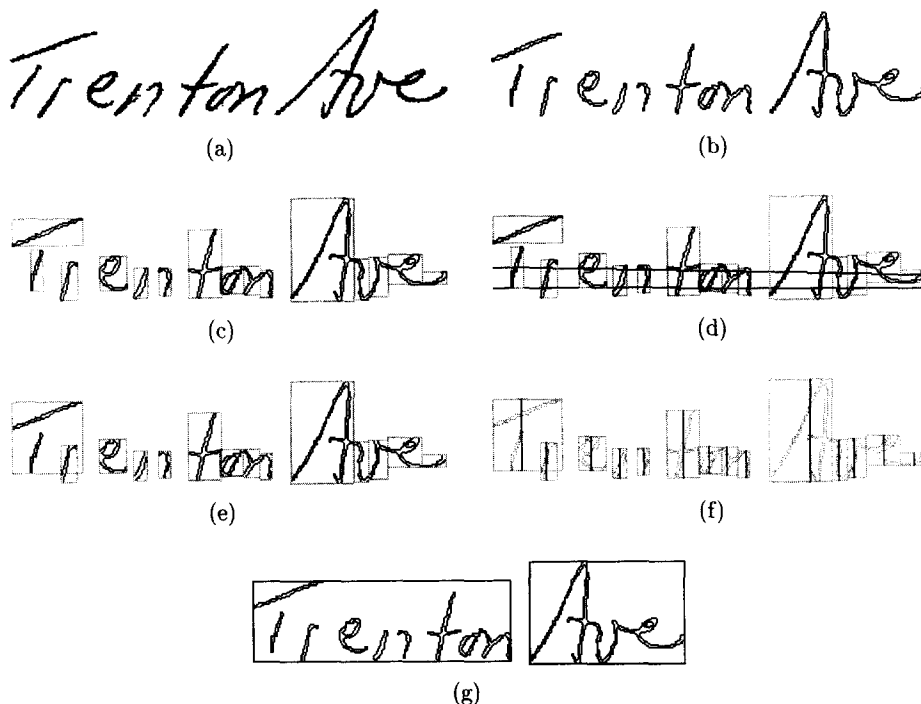 Trenton Ave Trenton Ave
(a) (b)
Trenton Ave Trenton Ave
(c) (d)
Trenton Ave Trenton Ave
(e) (f)
Trenton Ave
(g)